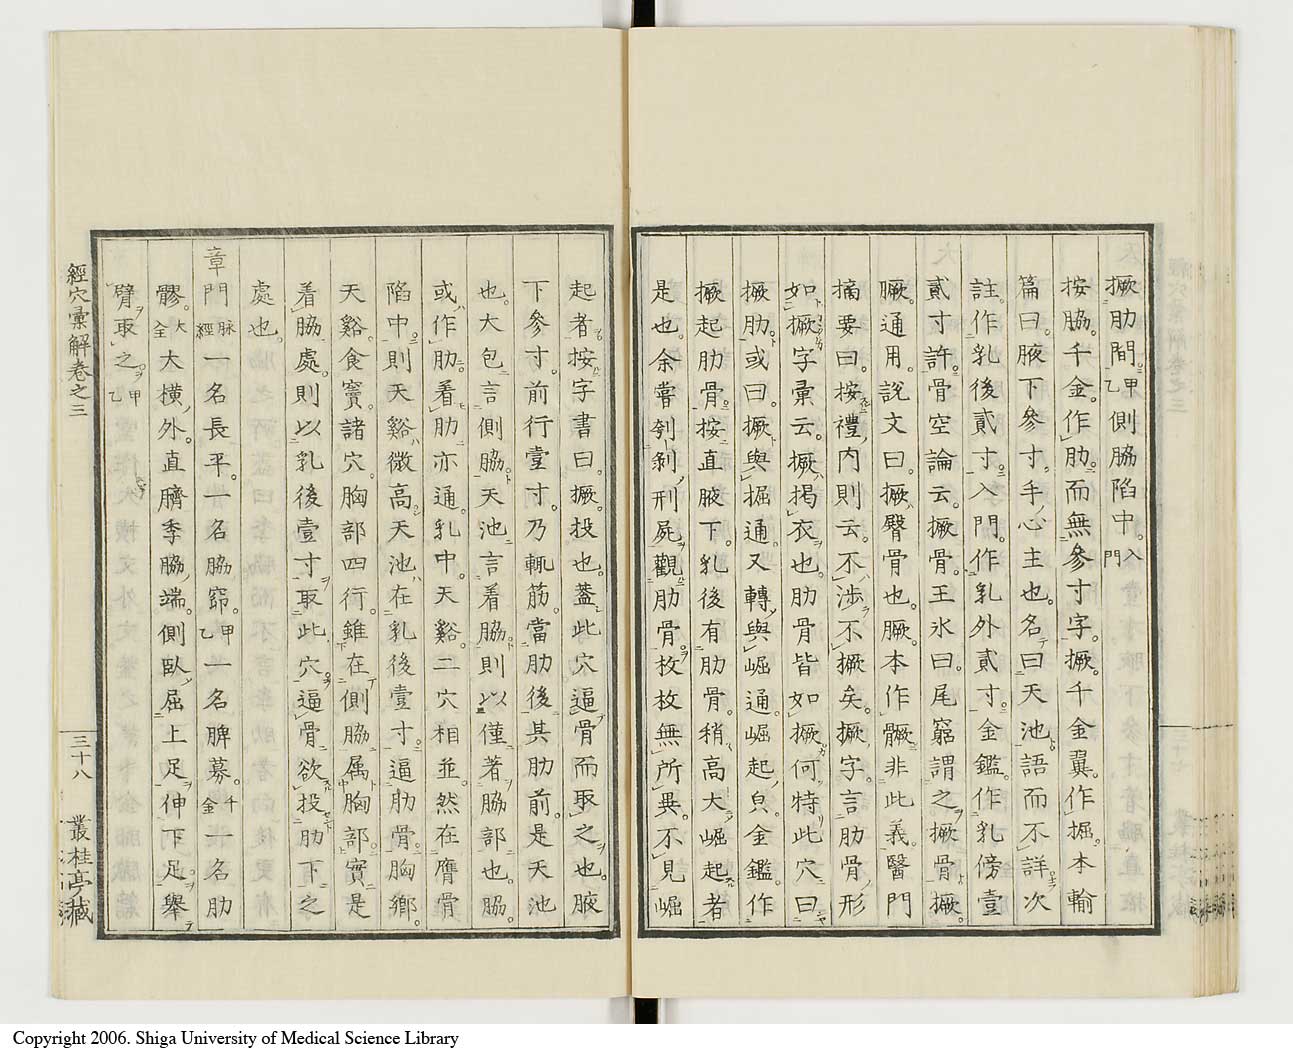 撅肋間。甲乙側脇陷中。入門
按脇。千金。作肋。而無參寸字。撅。千金翼。作掘。本輸
篇曰。腋下參寸。手心主也。名曰天池。語而不詳。次
註。作乳後貳寸。入門。作乳外貳寸。金鑑。作乳傍壹
貳寸許。骨空論云。撅骨。王氷曰。尾窮謂之撅骨。撅。
橛。通用。說文曰。撅臀骨也。厥。本作𩩲。非此義。醫門
摘要曰。按禮內則云。不涉不撅矣。撅字。言肋骨形
如撅字彙云。撅揭衣也。肋骨皆如撅。何特此穴曰
撅肋。或曰。撅與掘通。又轉與崛通。崛起皃。金鑑。作
撅起肋骨。按直腋下。乳後有肋骨。稍高大崛起者
是也。余嘗刳剝刑屍。觀肋骨。枚枚無所異。不見崛
起者。按字書曰。撅。投也。蓋此穴逼骨而取之也。腋
下參寸。前行壹寸。乃輒筋。當肋後。其肋前。是天池
也。大包言側脇。天池言着脇。則以僅著脇部也。脇。
或作肋。着肋亦通。乳中。天谿。二穴相並。然在膺骨
陷中。則天谿微高。天池在乳後壹寸。逼肋骨。胸鄉。
天谿。食竇諸穴。胸部四行。錐在側脇。属胸部。實是
着脇處。則以乳後壹寸取此穴。逼骨欲投肋下之
處也。
章門脉經一名長平。一名脇窌。甲乙一名脾募。千金一名肋
髎。大全大橫外。直臍季脇端。側臥屈上足。伸下足。舉
臂取之。甲乙
經穴彙解卷之三
三十八
叢桂亭藏
Copyright 2006. Shiga University of Medical Science Library